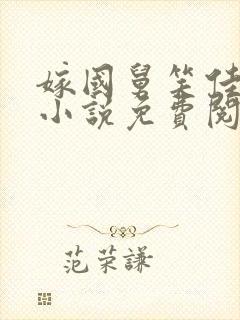 嫁國舅笑佳
小說免費閱
范荣謙